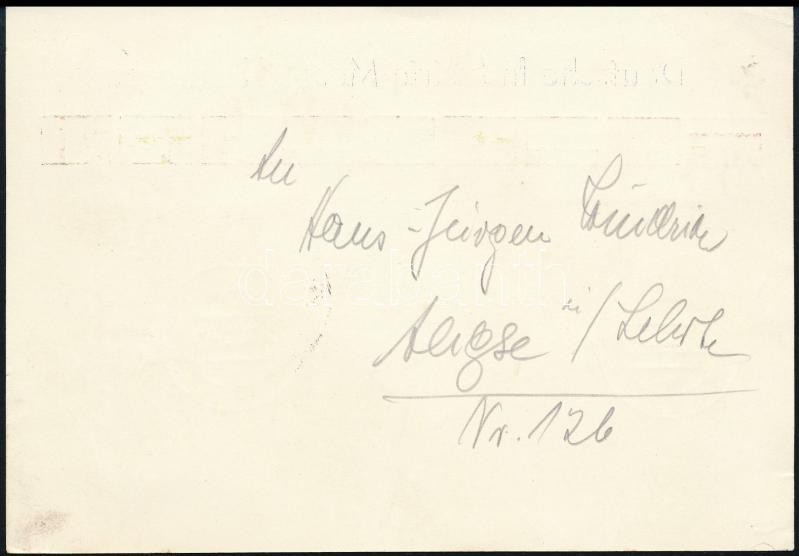 An
Hans-Jürgen
Aligse ü/Lehrte
Nr. 126
darabanth